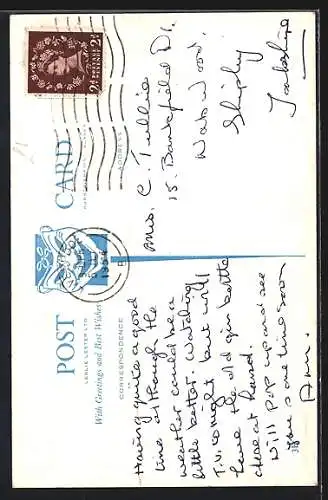 POST CARD
LESLIE LESTER LTD
With Greetings and Best Wishes
CORRESPONDENCE
ADDRESS
Having quite a good
time although the
weather could be a
little better. Watching
T.V. tonight but will
have the old gin bottle
close at hand.
Will pop up and see
you sometime soon
Mrs. C.
15. Bankfield Dr.
Wood
Shipley
Yorkshire
POSTAGE
REVENUE
2½D 2½D